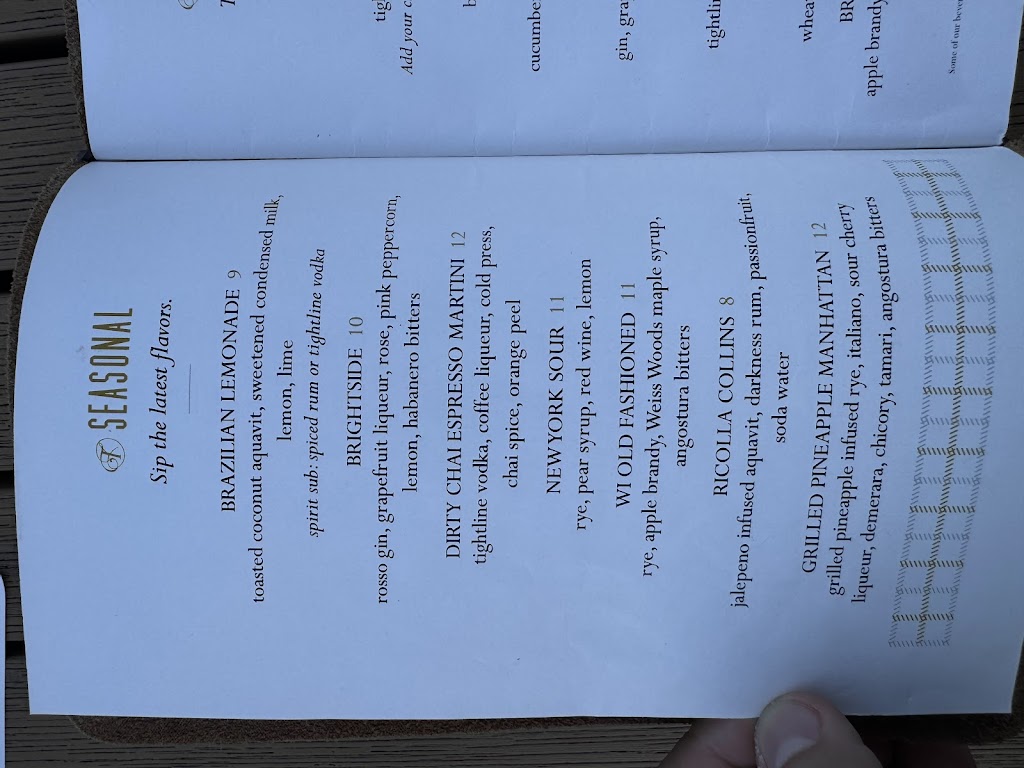 SEASONAL
Sip the latest flavors.
BRAZILIAN LEMONADE 9
toasted coconut aquavit, sweetened condensed milk,
lemon, lime
spirit sub: spiced rum or tightline vodka
BRIGHTSIDE 10
rosso gin, grapefruit liqueur, rose, pink peppercorn,
lemon, habanero bitters
DIRTY CHAI ESPRESSO MARTINI 12
tightline vodka, coffee liqueur, cold press,
chai spice, orange peel
NEW YORK SOUR 11
rye, pear syrup, red wine, lemon
WI OLD FASHIONED 11
rye, apple brandy, Weiss Woods maple syrup,
angostura bitters
RICOLLA COLLINS 8
jalepeno infused aquavit, darkness rum, passionfruit,
soda water
GRILLED PINEAPPLE MANHATTAN 12
grilled pineapple infused rye, italiano, sour cherry
liqueur, demerara, chicory, tamari, angostura bitters
Add your c
cucumbe
gin, gra
tightlin
whea
BR
apple brandy
Some of our bever